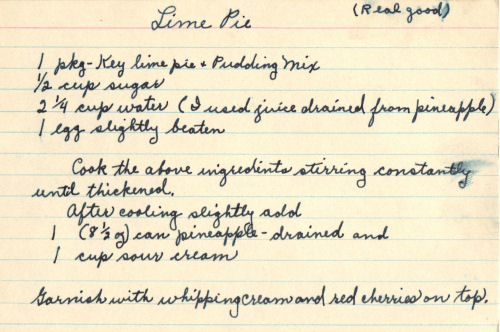 Lime Pie
(Real good)
1 pkg - Key lime pie + Pudding Mix
1/2 cup sugar
2 1/4 cup water (I used juice drained from pineapple)
1 egg slightly beaten
Cook the above ingredients stirring constantly
until thickened.
After cooling slightly add
1 (8 1/2 oz) can pineapple - drained and
1 cup sour cream
Garnish with whipping cream and red cherries on top.